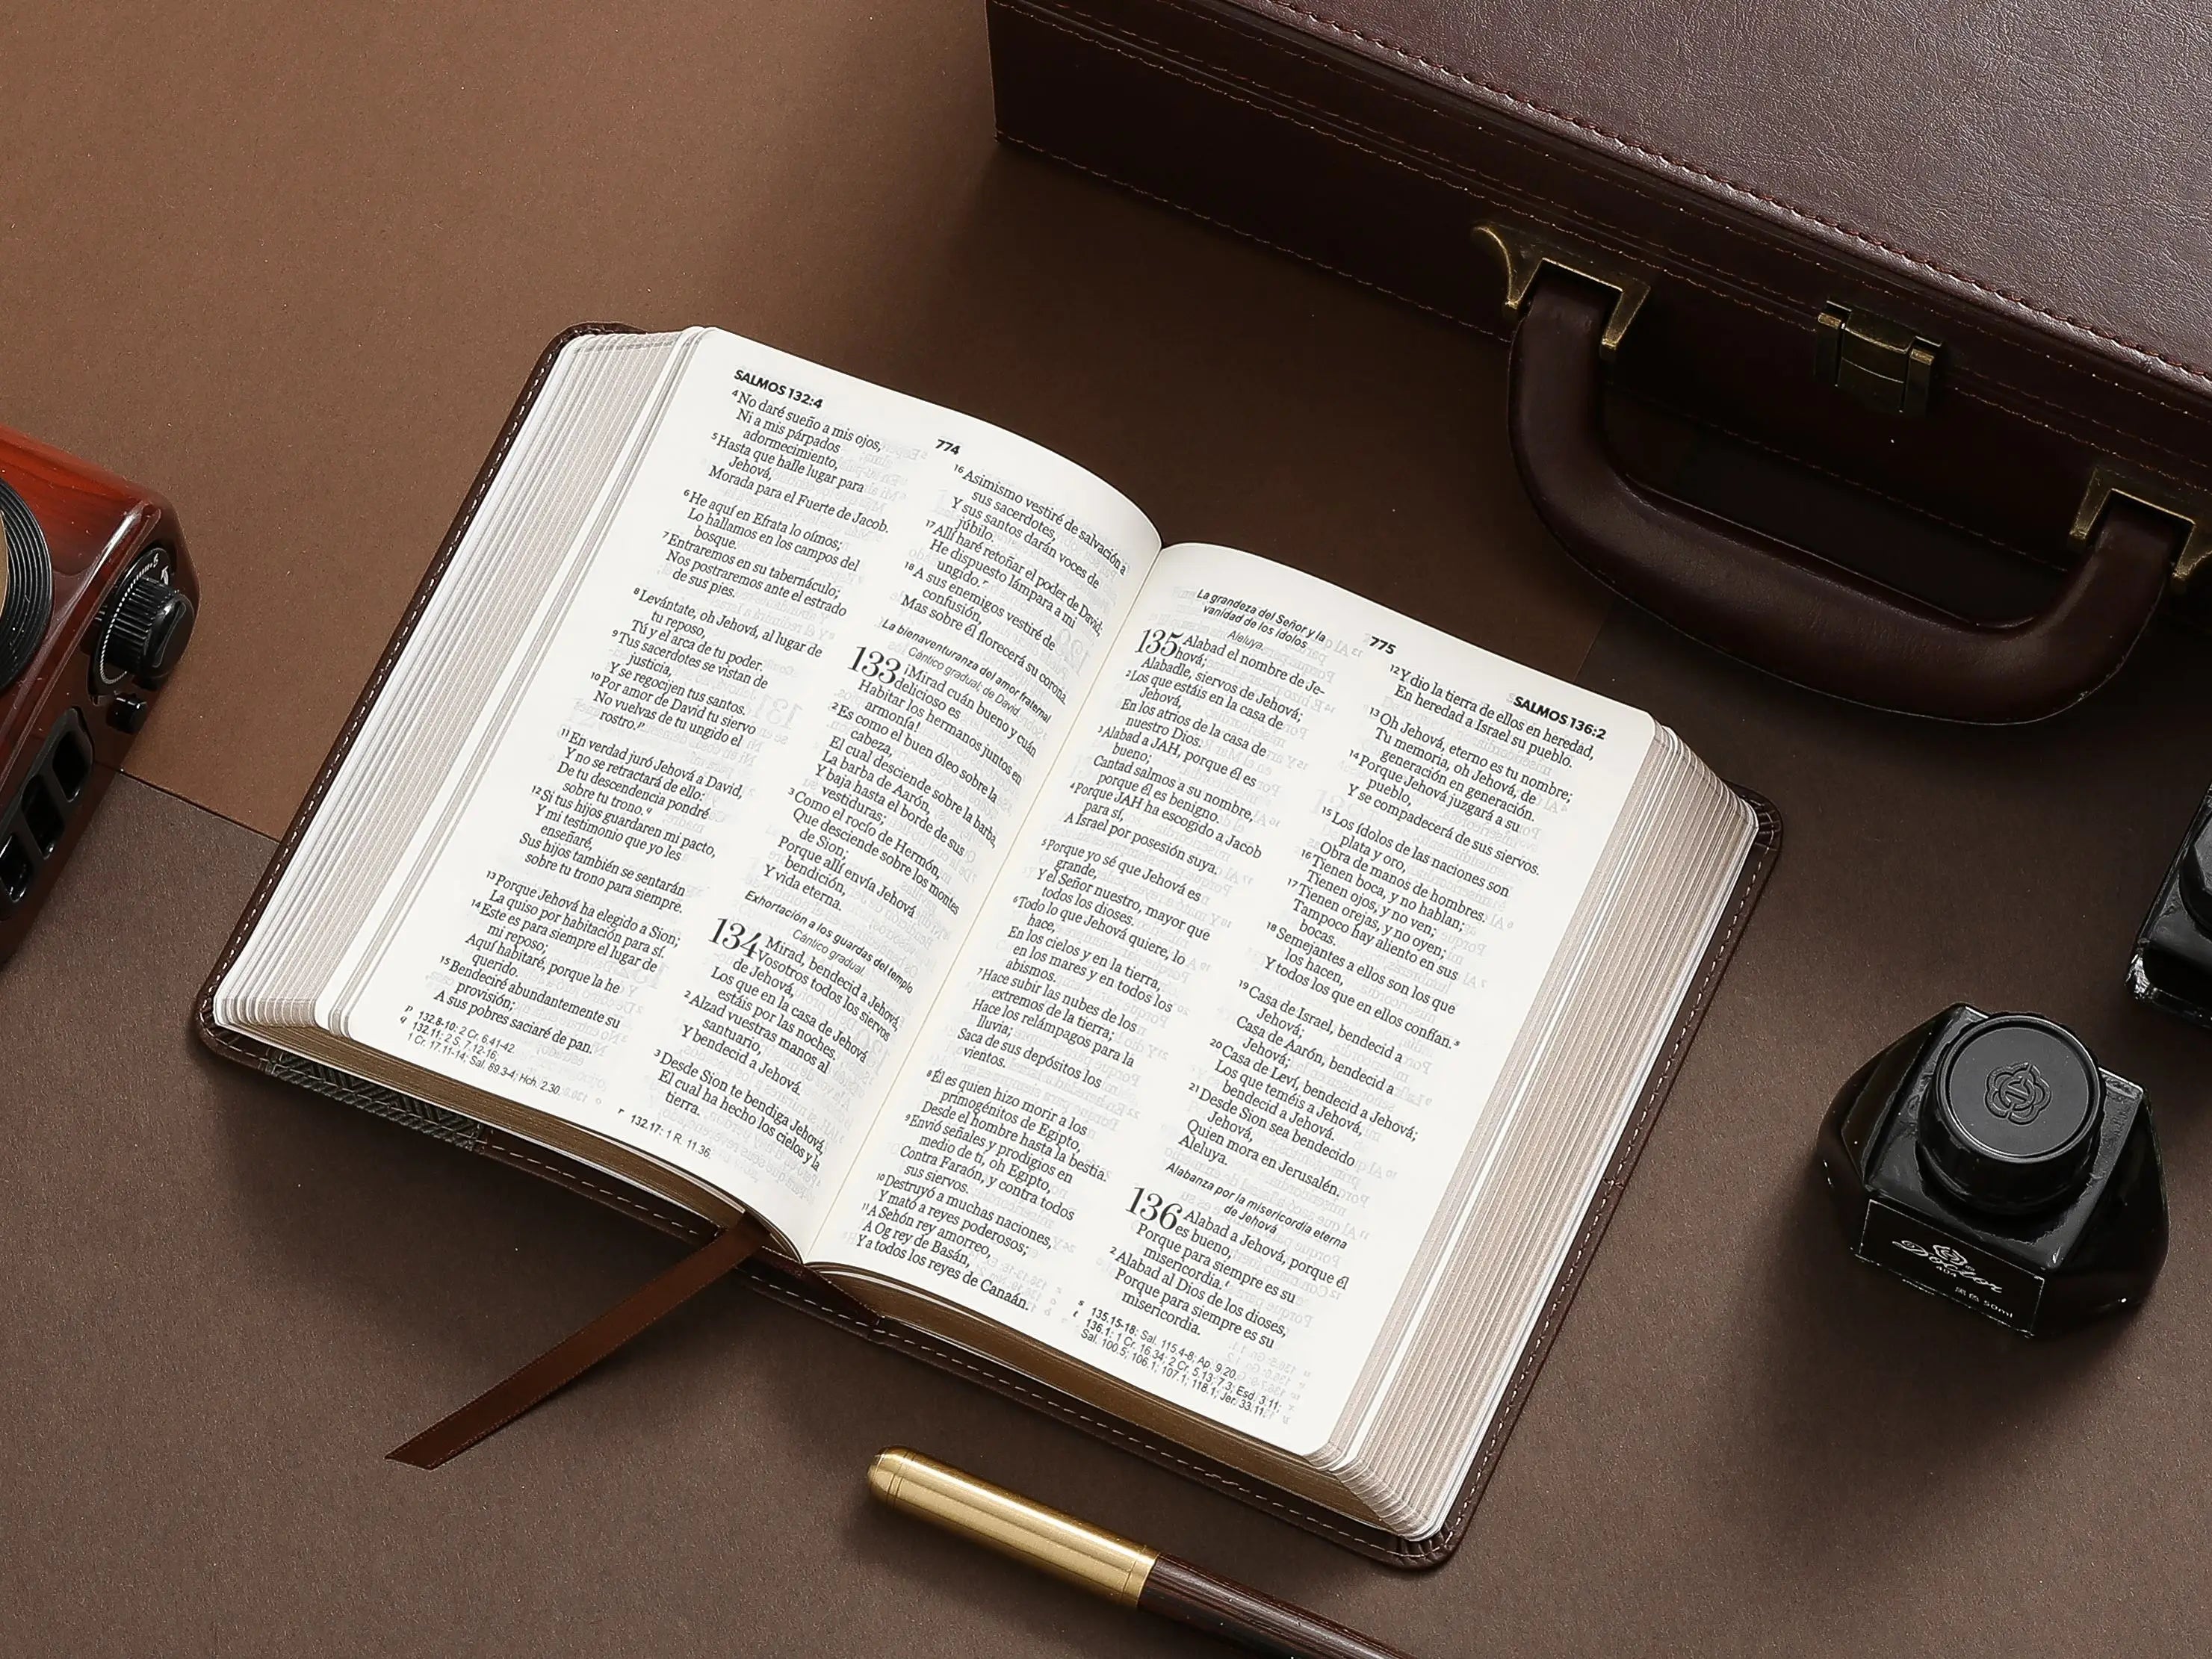 SALMOS 132:4
774
4 No daré sueño a mis ojos,
Ni a mis párpados
adormecimiento,
5 Hasta que halle lugar para
Jehová,
Morada para el Fuerte de Jacob.
6 He aquí en Efrata lo oímos;
Lo hallamos en los campos del
bosque.
7 Entraremos en su tabernáculo;
Nos postraremos ante el estrado
de sus pies.
8 Levántate, oh Jehová, al lugar de
tu reposo,
Tú y el arca de tu poder.
9 Tus sacerdotes se vistan de
justicia,
Y se regocijen tus santos.
10 Por amor de David tu siervo
No vuelvas de tu ungido el
rostro.p
11 En verdad juró Jehová a David,
Y no se retractará de ello:
De tu descendencia pondré
sobre tu trono.q
12 Si tus hijos guardaren mi pacto,
Y mi testimonio que yo les
enseñaré,
Sus hijos también se sentarán
sobre tu trono para siempre.
13 Porque Jehová ha elegido a Sion;
La quiso por habitación para sí.
14 Este es para siempre el lugar de
mi reposo;
Aquí habitaré, porque la he
querido.
15 Bendeciré abundantemente su
provisión;
A sus pobres saciaré de pan.
p 132.8-10: 2 Cr. 6.41-42.
q 132.11: 2 S. 7.12-16;
1 Cr. 17.11-14; Sal. 89.3-4; Hch. 2.30.
16 Asimismo vestiré de salvación a
sus sacerdotes,
Y sus santos darán voces de
júbilo.
17 Allí haré retoñar el poder de David;
He dispuesto lámpara a mi
ungido.r
18 A sus enemigos vestiré de
confusión,
Mas sobre él florecerá su corona.
La bienaventuranza del amor fraternal
Cántico gradual; de David.
133 ¡Mirad cuán bueno y cuán
delicioso es
Habitar los hermanos juntos en
armonía!
2 Es como el buen óleo sobre la
cabeza,
El cual desciende sobre la barba,
La barba de Aarón,
Y baja hasta el borde de sus
vestiduras;
3 Como el rocío de Hermón,
Que desciende sobre los montes
de Sion;
Porque allí envía Jehová
bendición,
Y vida eterna.
Exhortación a los guardas del templo
Cántico gradual.
134 Mirad, bendecid a Jehová,
Vosotros todos los siervos
de Jehová,
Los que en la casa de Jehová
estáis por las noches.
2 Alzad vuestras manos al
santuario,
Y bendecid a Jehová.
3 Desde Sion te bendiga Jehová,
El cual ha hecho los cielos y la
tierra.
r 132.17: 1 R. 11.36.
775
SALMOS 136:2
La grandeza del Señor y la
vanidad de los ídolos
Aleluya.
135 Alabad el nombre de Je-
hová;
Alabadle, siervos de Jehová;
2 Los que estáis en la casa de
Jehová,
En los atrios de la casa de
nuestro Dios.
3 Alabad a JAH, porque él es
bueno;
Cantad salmos a su nombre,
porque él es benigno.
4 Porque JAH ha escogido a Jacob
para sí,
A Israel por posesión suya.
5 Porque yo sé que Jehová es
grande,
Y el Señor nuestro, mayor que
todos los dioses.
6 Todo lo que Jehová quiere, lo
hace,
En los cielos y en la tierra,
en los mares y en todos los
abismos.
7 Hace subir las nubes de los
extremos de la tierra;
Hace los relámpagos para la
lluvia;
Saca de sus depósitos los
vientos.
8 Él es quien hizo morir a los
primogénitos de Egipto,
Desde el hombre hasta la bestia.
9 Envió señales y prodigios en
medio de ti, oh Egipto,
Contra Faraón, y contra todos
sus siervos.
10 Destruyó a muchas naciones,
Y mató a reyes poderosos;
11 A Sehón rey amorreo,
A Og rey de Basán,
Y a todos los reyes de Canaán.
12 Y dio la tierra de ellos en heredad,
En heredad a Israel su pueblo.
13 Oh Jehová, eterno es tu nombre;
Tu memoria, oh Jehová, de
generación en generación.
14 Porque Jehová juzgará a su
pueblo,
Y se compadecerá de sus siervos.
15 Los ídolos de las naciones son
plata y oro,
Obra de manos de hombres.
16 Tienen boca, y no hablan;
Tienen ojos, y no ven;
17 Tienen orejas, y no oyen;
Tampoco hay aliento en sus
bocas.
18 Semejantes a ellos son los que
los hacen,
Y todos los que en ellos confían.s
19 Casa de Israel, bendecid a
Jehová;
Casa de Aarón, bendecid a
Jehová;
20 Casa de Leví, bendecid a Jehová;
Los que teméis a Jehová,
bendecid a Jehová.
21 Desde Sion sea bendecido
Jehová,
Quien mora en Jerusalén.
Aleluya.
Alabanza por la misericordia eterna
de Jehová
136 Alabad a Jehová, porque él
es bueno,
Porque para siempre es su
misericordia.t
2 Alabad al Dios de los dioses,
Porque para siempre es su
misericordia.
s 135.15-18: Sal. 115.4-8; Ap. 9.20.
t 136.1: 1 Cr. 16.34; 2 Cr. 5.13; 7.3; Esd. 3.11;
Sal. 100.5; 106.1; 107.1; 118.1; Jer. 33.11.
50ml